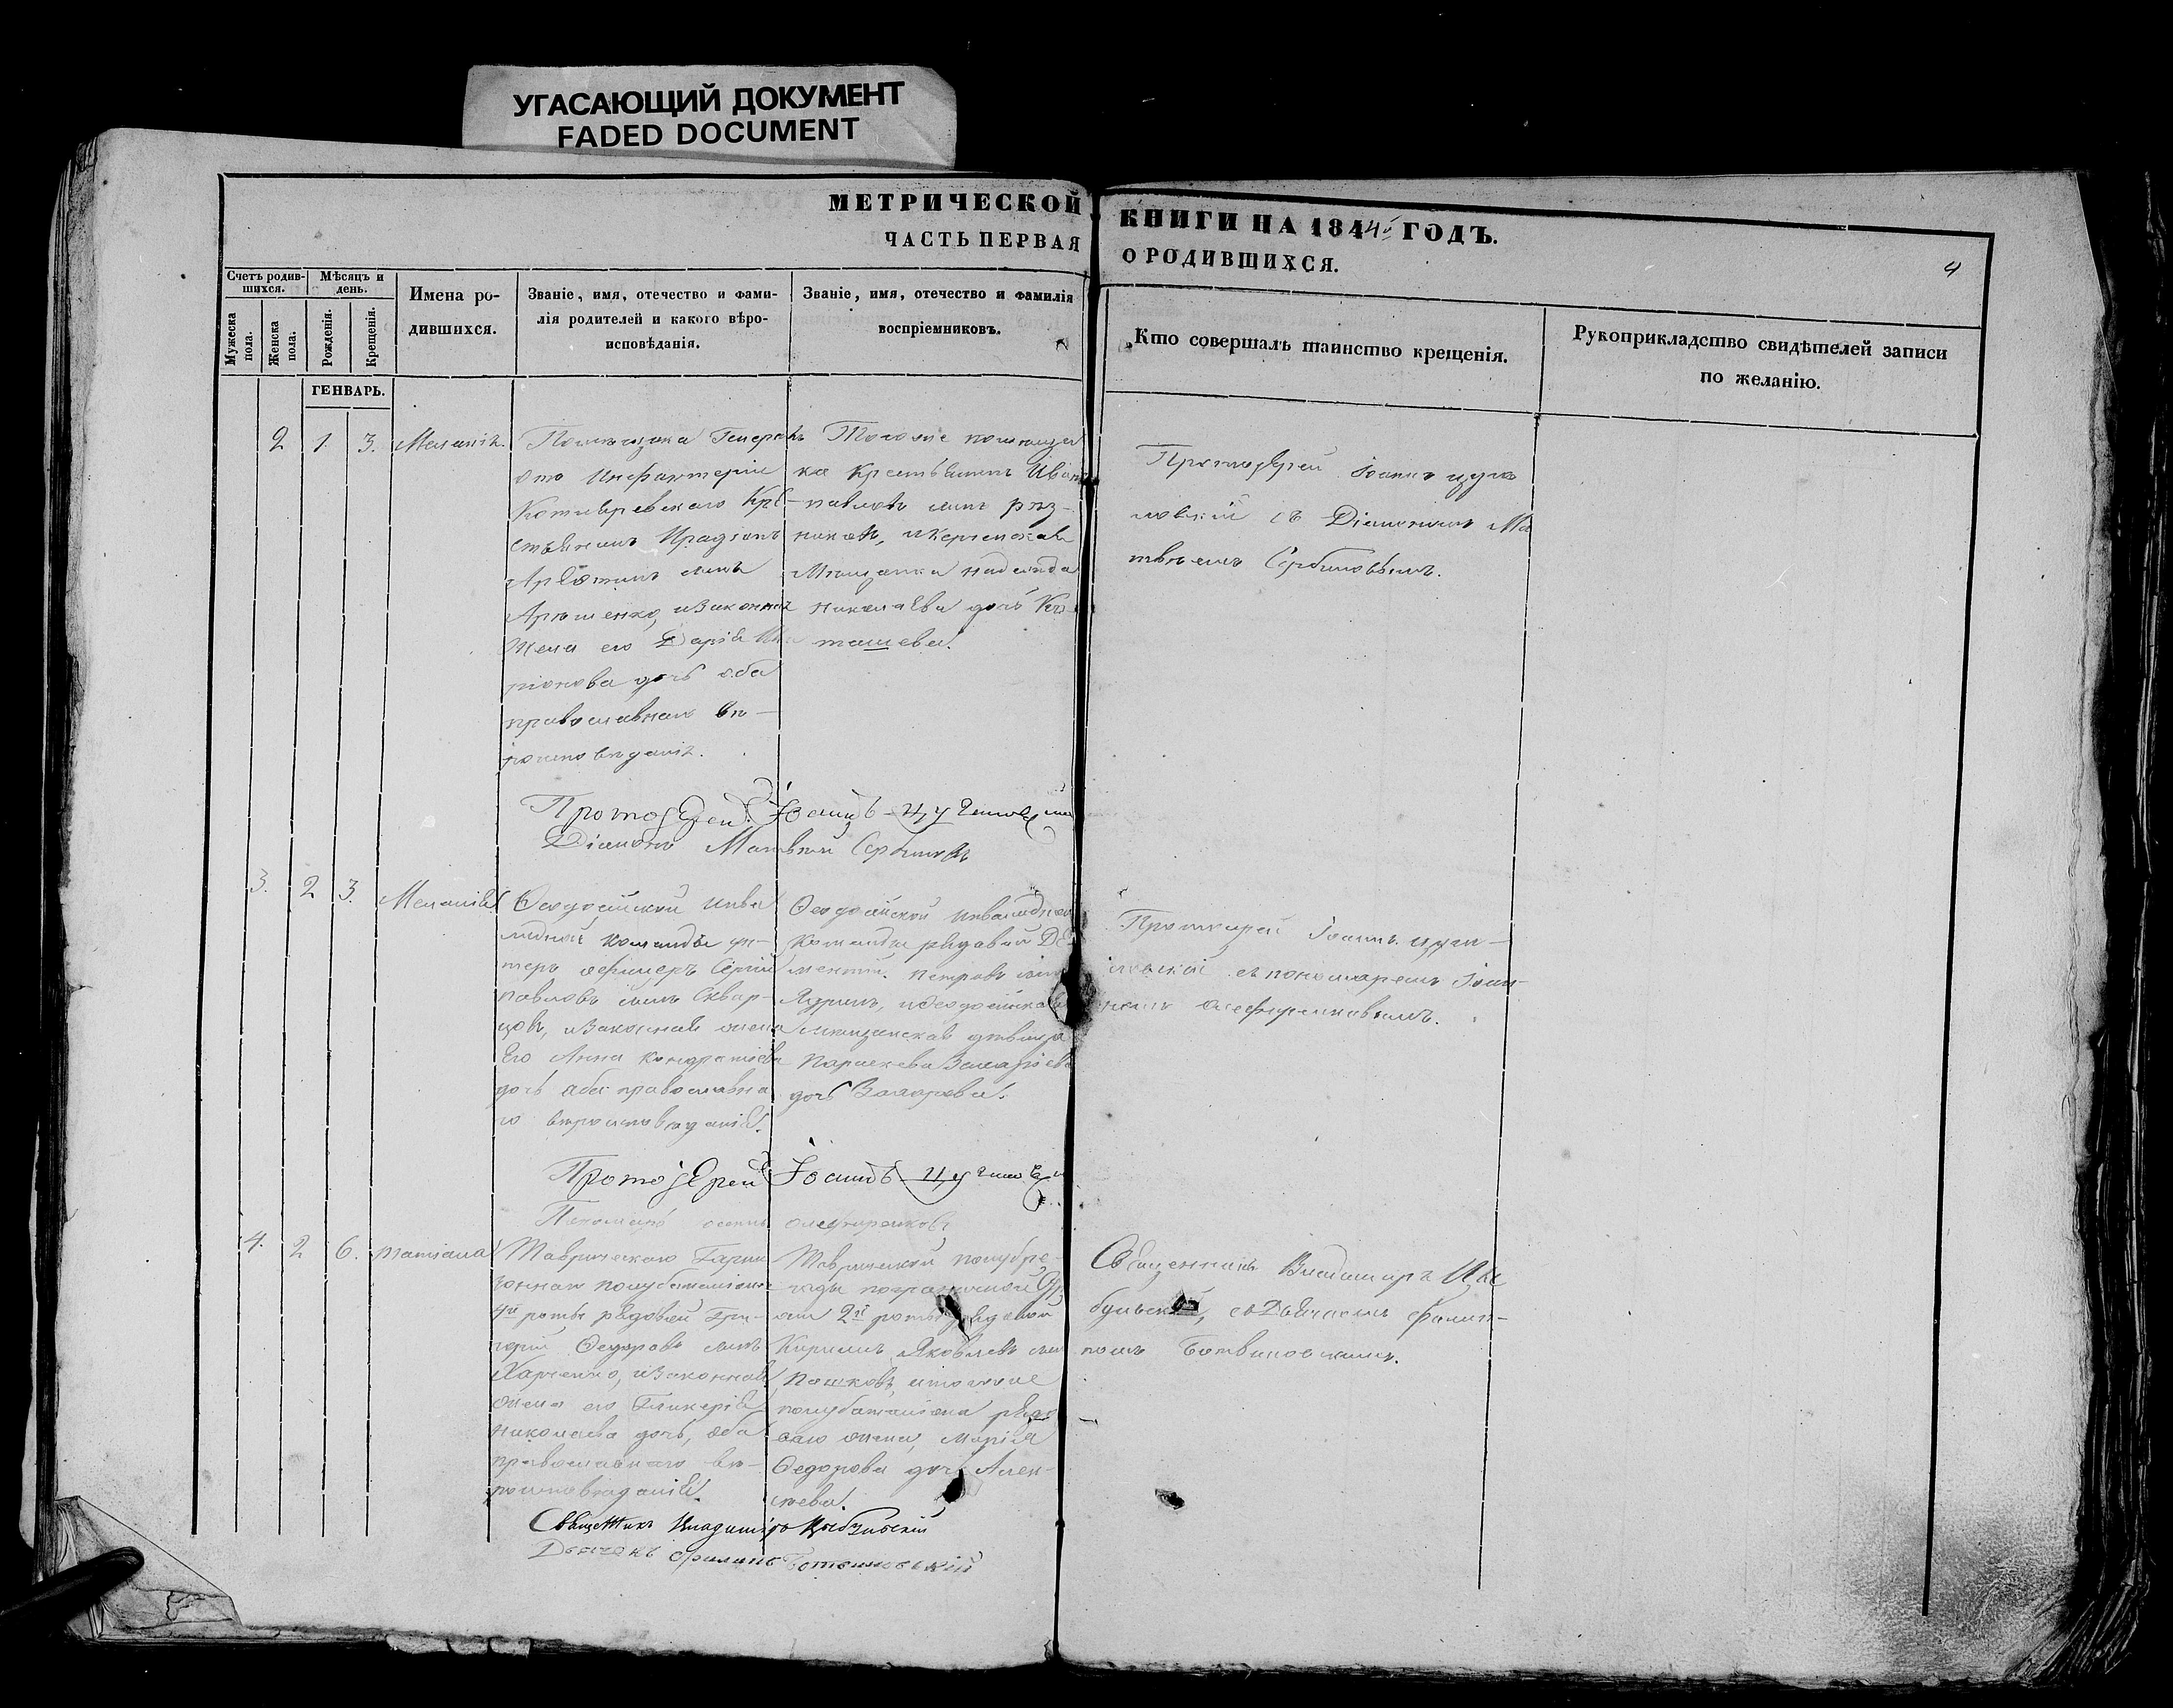 УГАСАЮЩИЙ ДОКУМЕНТ
FADED DOCUMENT
МЕТРИЧЕСКОЙ КНИГИ НА 1844й ГОДЪ.
ЧАСТЬ ПЕРВАЯ О РОДИВШИХСЯ.
4
Счетъ родив-
шихся.
Мѣсяцъ и
день.
Мужеска
пола.
Женска
пола.
Рожденія.
Крещенія.
Имена ро-
дившихся.
Званіе, имя, отечество и фами-
лія родителей и какого вѣро-
исповѣданія.
Званіе, имя, отечество и фамилія
воспріемниковъ.
Кто совершалъ таинство крещенія.
Рукоприкладство свидѣтелей записи
по желанію.
ГЕНВАРЬ.
2 1. 3. Меланія.
Помѣщика Генерала
отъ Инфантеріи
Котляревскаго Кре-
стьянинъ
сынъ
и законная
жена его Дарія
дочь оба
православнаго вѣ-
роисповѣданія.
Того же помѣщи
ка Крестьянинъ Иванъ
Павловъ сынъ Рѣз-
никовъ, и Керченская
Мѣщанка Надежда
Николаева дочь
Протоіерей Іоаннъ
съ Діакономъ Ма
твѣемъ Сербиновымъ.
Протоіерей Іоаннъ
Діаконъ Матвѣй Сербиновъ
3. 2 3. Меланія
Ѳеодосійской Инва
лидной команды ун-
теръ офицеръ Сергій
Павловъ сынъ Сквор-
цовъ, и законная жена
его Анна Кондратіева
дочь оба православна
го вѣроисповѣданія.
Ѳеодосійской Инвалидной
Команды рядовой Де
ментій Петровъ сынъ
Ядринъ, и Ѳеодосійская
мѣщанская дѣвица
Параскева
дочь
Протоіерей Іоаннъ
съ пономаремъ
Протоіерей Іоаннъ
Пономарь
4. 2 6. Татіана
Таврическаго Гарни
зоннаго полубаталіона
4й роты рядовой Гри-
горій Ѳедоровъ сынъ
Харченко, и законная
жена его Гликерія
Николаева дочь, оба
православнаго вѣ-
роисповѣданія.
Таврической полубри-
гады пограничной
2й роты рядовой
Кирилъ Яковлевъ сынъ
Пашковъ, и того же
полубаталіона рядо
ваго жена, Марія
Ѳедорова дочь Алек-
сѣева.
Священникъ Владиміръ Цы
бульскій, съ Дьячкомъ Филип-
помъ Ботвиновскимъ.
Священникъ Владиміръ Цыбульскій
Дьячекъ Филипъ Ботвиновскій